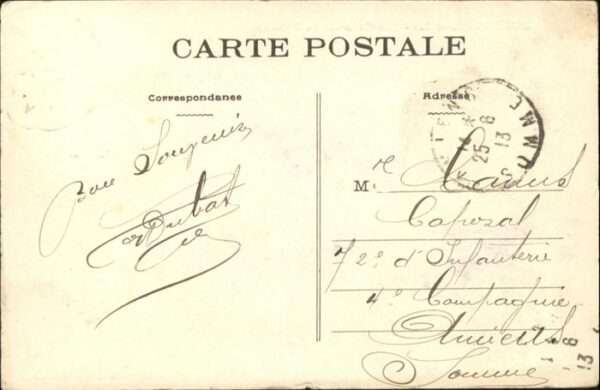 CARTE POSTALE
Correspondance
Adresse
Bon Souvenir
Dubat
SOMME
25 - 8
13
M. r Camus
Caporal
72e d'Infanterie
4e Compagnie
Amiens
Somme
8
13